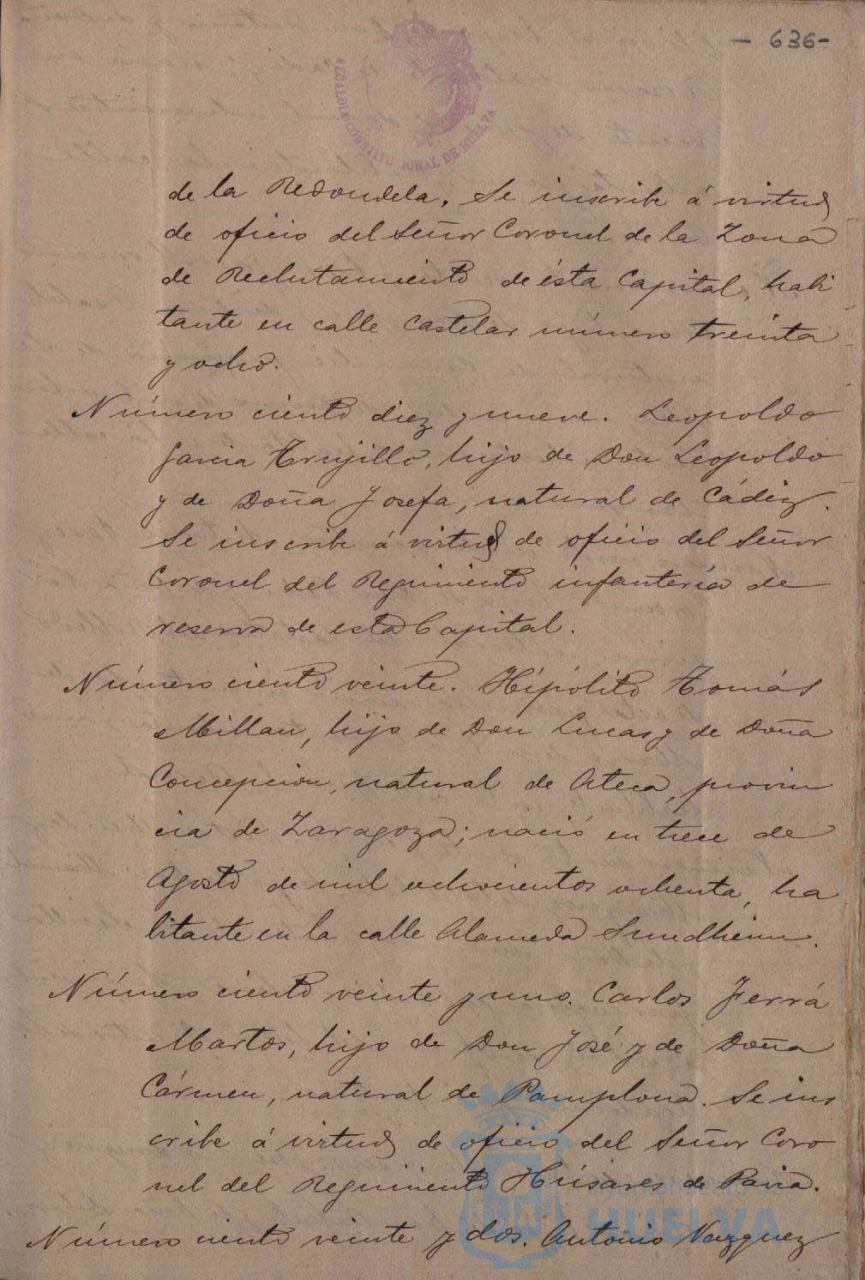 - 636-
ALCALDIA CONSTITUCIONAL DE HUELVA
de la Redondela. Se inscribe á virtud
de oficio del Señor Coronel de la Zona
de Reclutamiento de ésta Capital, habi
tante en calle Castelar número treinta
y ocho.
Número ciento diez y nueve. Leopoldo
Garcia Trujillo, hijo de Don Leopoldo
y de Doña Josefa, natural de Cádiz.
Se inscribe á virtud de oficio del Señor
Coronel del Regimiento infantería de
reserva de esta Capital.
Número ciento veinte. Hipólito Tomás
Millan, hijo de Don Lucas y de Doña
Concepcion, natural de Ateca, provin
cia de Zaragoza; nació en trece de
Agosto de mil ochocientos ochenta, ha
bitante en la calle Alameda Sundheim.
Número ciento veinte y uno. Carlos Ferrá
Martos, hijo de Don José y de Doña
Cármen, natural de Pamplona. Se ins
cribe á virtud de oficio del Señor Coro
nel del Regimiento Húsares de Pavia.
Número ciento veinte y dos. Antonio Vazquez
HUELVA